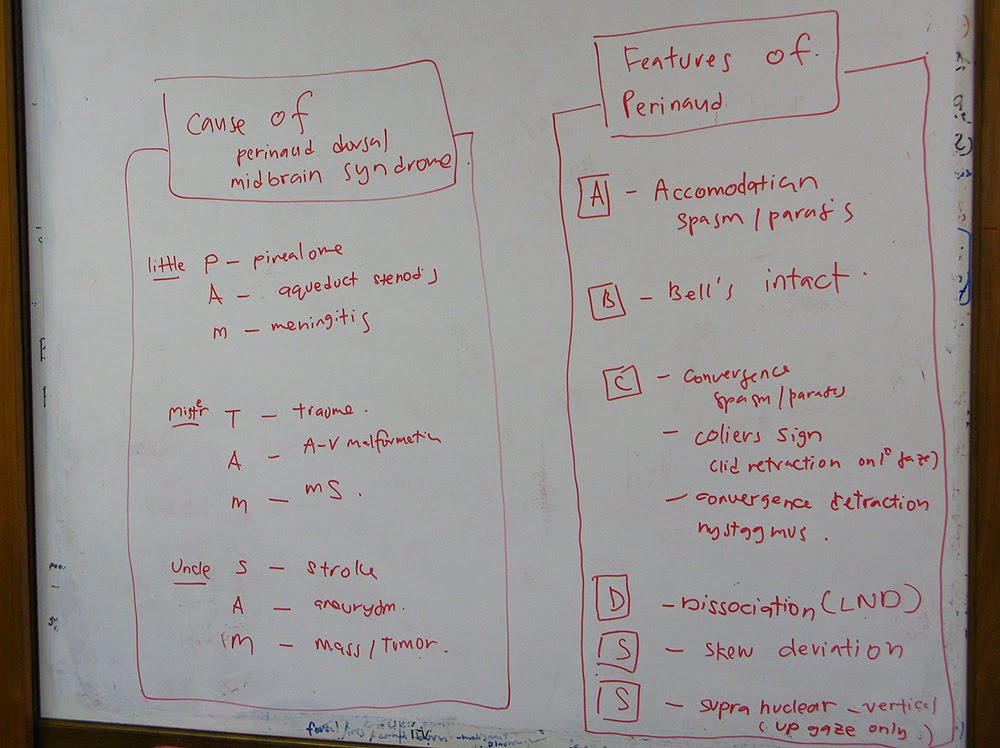 cause of
perinaud dorsal
midbrain syndrome
little P - pinealome
A - aqueduct stenosis
m - meningitis
Mister T - traume.
A - A-V malformation
m - mS.
Uncle S - stroke
A - aneurydm.
m - mass/Tumor.
Features of.
Perinaud.
A - Accomodation
spasm/paratis
B - Bell's intact.
C - convergence
spasm/paratis
- coliers sign
(lid retraction on 1° gaze)
- convergence retraction
nystagmus.
D - Dissociation (LND)
S - skew deviation
S - supra nuclear - vertical
(up gaze only)